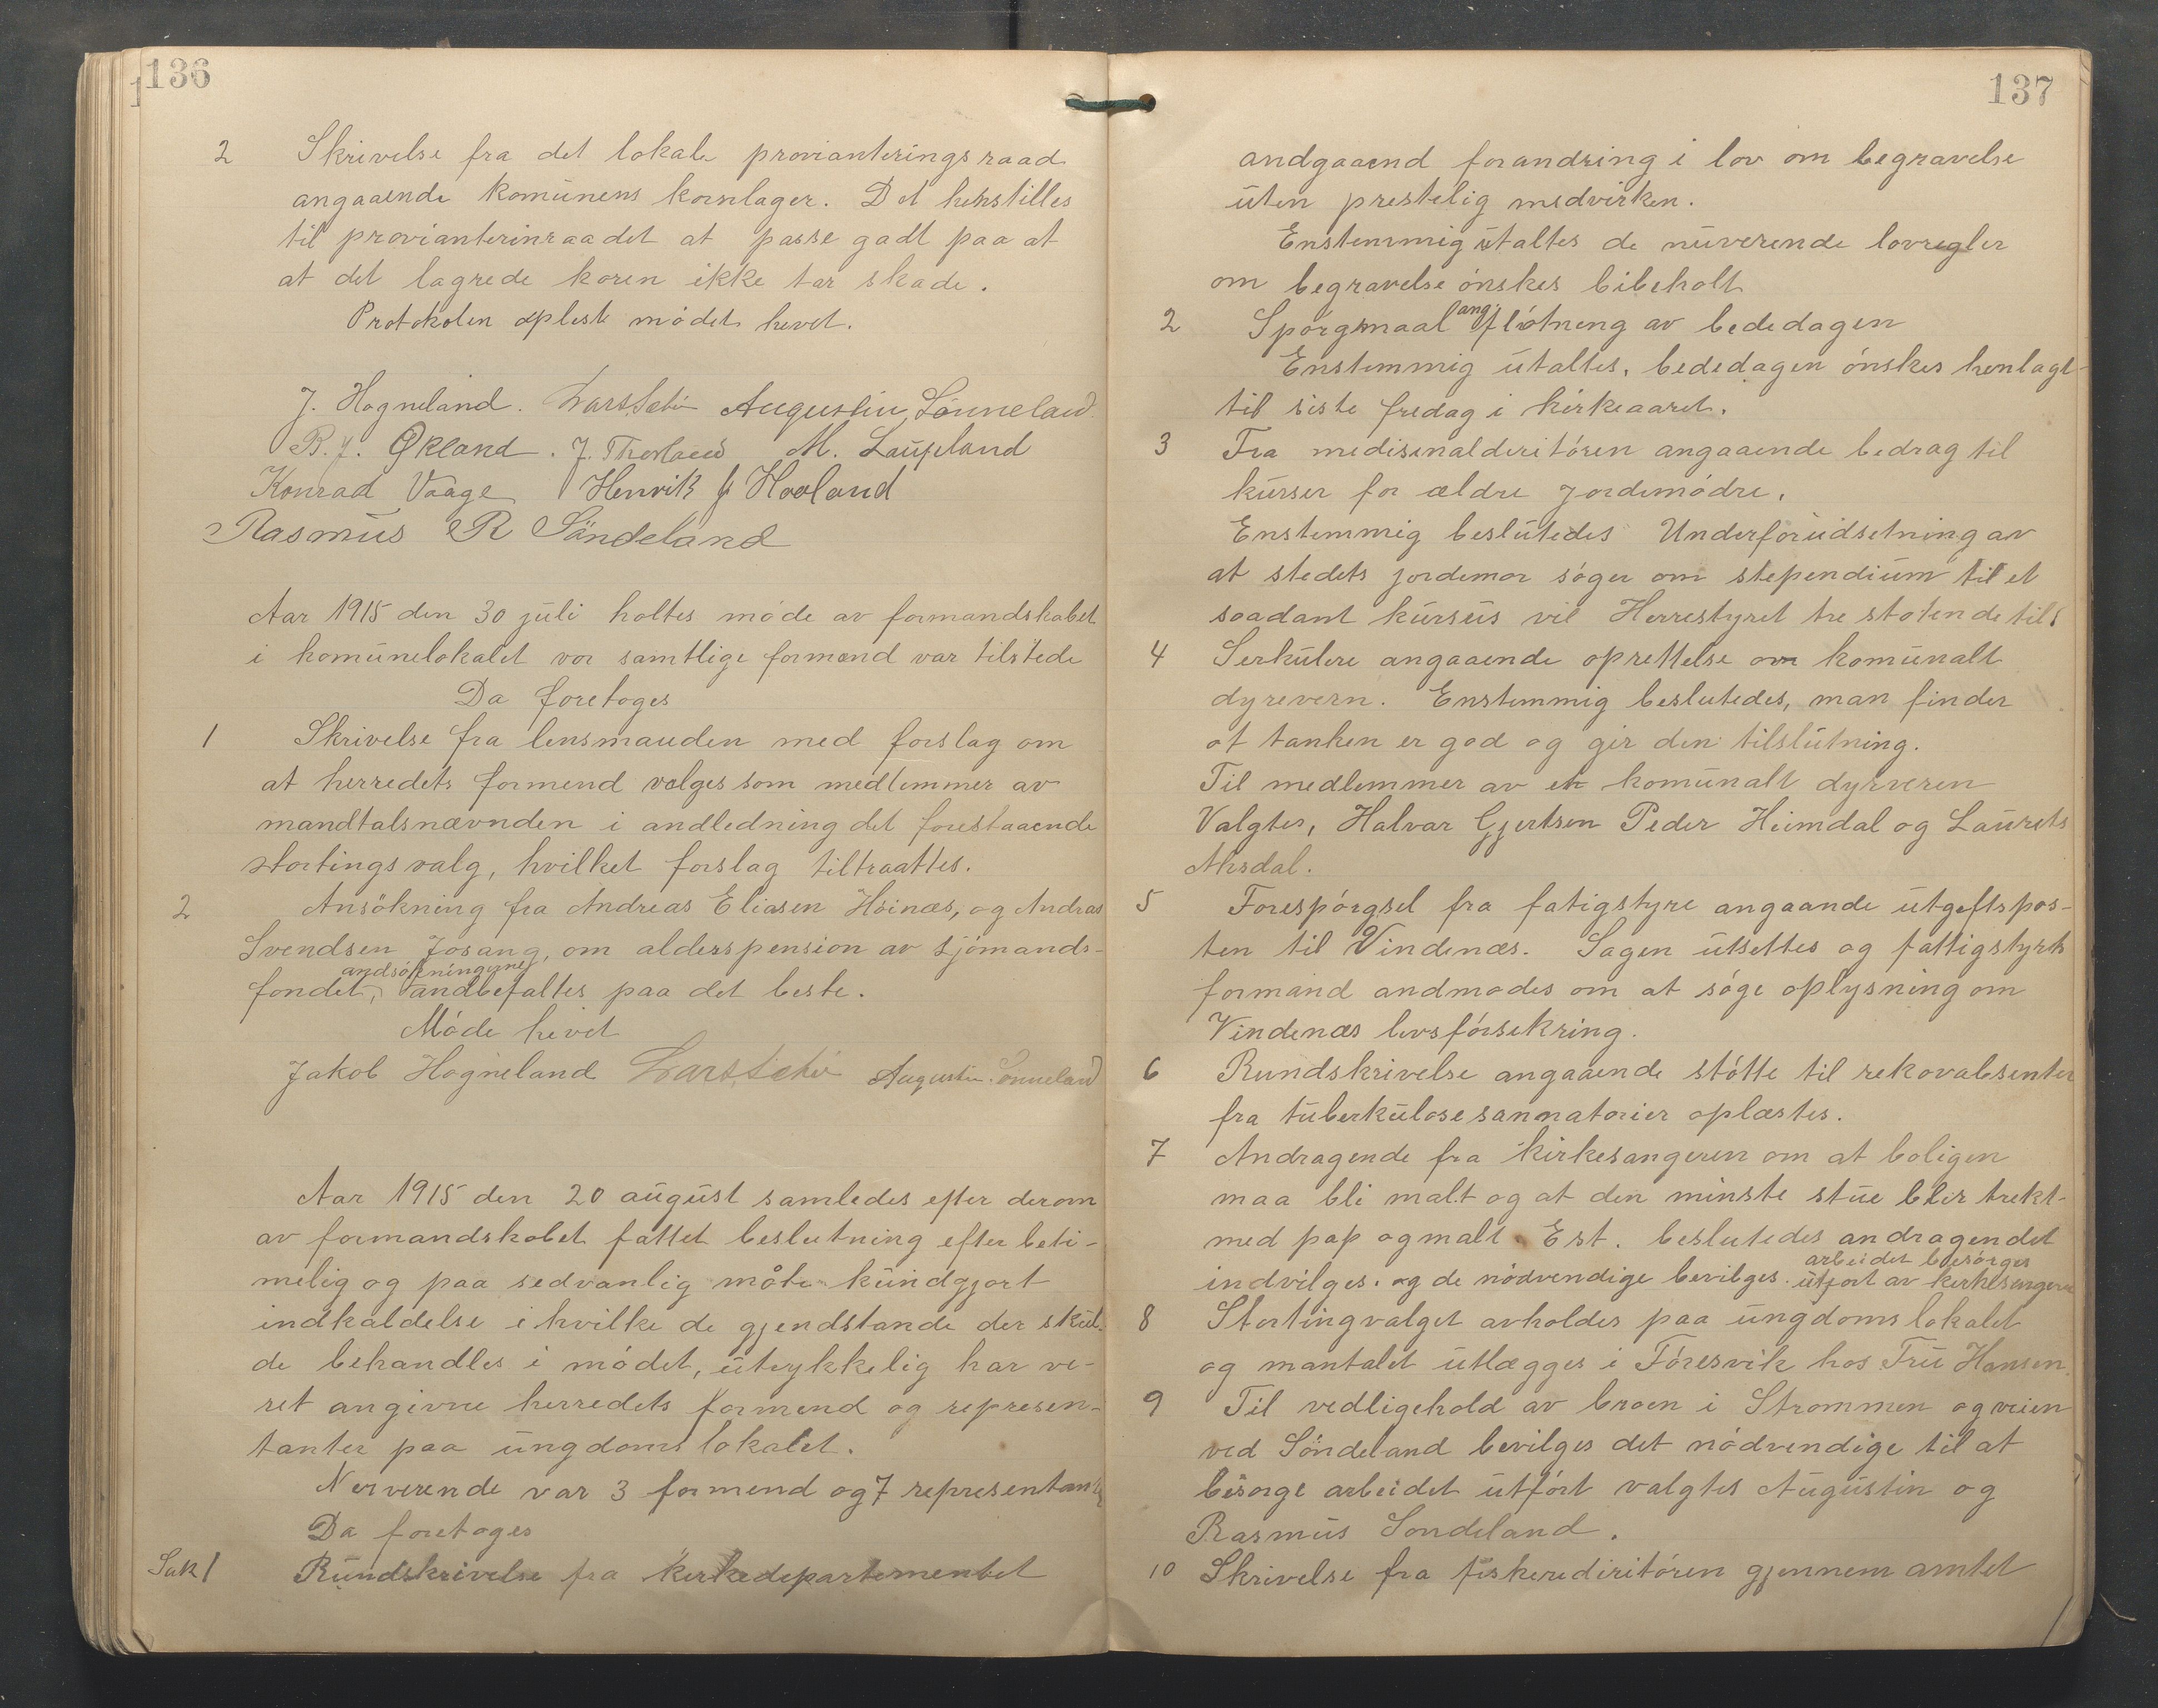 136
2 Skrivelse fra det lokale provianteringsraad
angaaende komunens kornlager. Det henstilles
til provianterinraadet at passe godt paa at
at det lagrede koren ikke tar skade.
Protokolen opleste mödet hevet.
J. Hogneland. Augustin Sönneland
B. J. Økland. J. M. Laupland
Konrad Vaage Henrik J Hovland
Rasmus R Söndeland
Aar 1915 den 30 juli holtes möde av formandskabet
i komunelokalet vor samtlige formænd var tilstede
Da foretoges
1 Skrivelse fra lensmanden med forslag om
at herredets formend vælges som medlemmer av
mandtalsnævnden i andledning det forestaaende
stortingsvalg, hvilket forslag tiltraattes.
2 Ansökning fra Andreas Eliasen Höinæs, og Andras
Svendsen Josang, om alderspension av sjömands-
andsökningerne
fondet, andbefaltes paa det beste.
Möde hevet
Jakob Hogneland Augustin Sönneland
Aar 1915 den 20 august samledes efter derom
av formandskabet fattet beslutning efter beti-
melig og paa sedvanlig måte kundgjort
indkaldelse i hvilke de gjendstande der skul-
de behandles i mödet, utrykkelig har ve-
ret angivne herredets formend og represen-
tanter paa ungdomslokalet.
Nerverende var 3 formend og 7 representanter
Da foretoges
Sak 1 Rundskrivelse fra kerkedepartementet
137
andgaaend forandring i lov om begravelse
uten prestelig medvirken.
Enstemmig utaltes de nuverende lovregler
om begravelse önskes bibeholt
2 Spörgsmaal ang flötneng av bededagen
Enstemmig utaltes, bededagen önskes henlagt
til siste fredag i kirkeaaret.
3 Fra medisinalderitören angaaende bedrag til
kurser for ældre jordemödre.
Enstemmig beslutedes Underforudsetning av
at stedets jordemor söger om stependium til et
saadant kursus vil Herrestyret tre stötende til.
4 Serkulere angaaende oprettelse om komunalt
dyrevern. Enstemmig beslutedes, man finder
at tanken er god og gir den tilslutning.
Til medlemmer av et komunalt dyrveren
Valgtes, Halvar Gjertsen Peder Heimdal og Laurets
Alvsdal.
5 Forespörgsel fra fatigstyre angaande utgeftspos-
ten til Vindenæs. Sagen utsettes og fattigstyrts
formand andmodes om at söge oplysning om
Vindenæs livsförsekring.
6 Rundskrivelse angaaende stötte til rekovalesenter
fra tuberkulosesannatorier oplæstes.
7 Andragende fra kirkesangeren om at boligen
maa bli malt og at den minste stue blir trekt
med pap og malt. Est. beslutedes andragendet
arbeidet besörges
indvilges. og de nödvendige bevilges. utfört av kerkesangeren
8 Stortingvalget avholdes paa ungdomslokalet
og mantalet utlægges i Föresvik hos Fru Hansen.
9 Til vedligehold av broen i Strommen og veien
ved Söndeland bevilges det nödvendige til at
besorge arbeidet utfört valgtes Augustin og
Rasmus Sondeland.
10 Skrivelse fra feskerediritören gjennem amtet